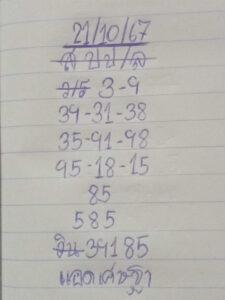 21/10/67
ส ปป/ล
ว/ร 3-9
39-31-38
35-91-98
95-18-15
85
585
วิน 39185
แอดเศรษฐา